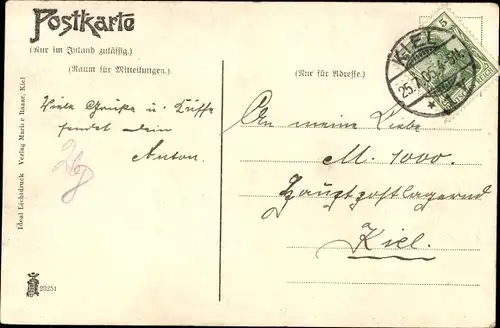 Postkarte
(Nur im Inland zulässig.)
(Raum für Mitteilungen.)
(Nur für Adresse.)
KIEL
25.7.05. 4-5N.
5
Viele Grüße u. Küsse
sendet dein
Anton.
An meine Liebe
M. 1000.
Hauptpostlagernd
Kiel.
Ideal Lichtdruck Verlag Marine Bazar, Kiel
23251